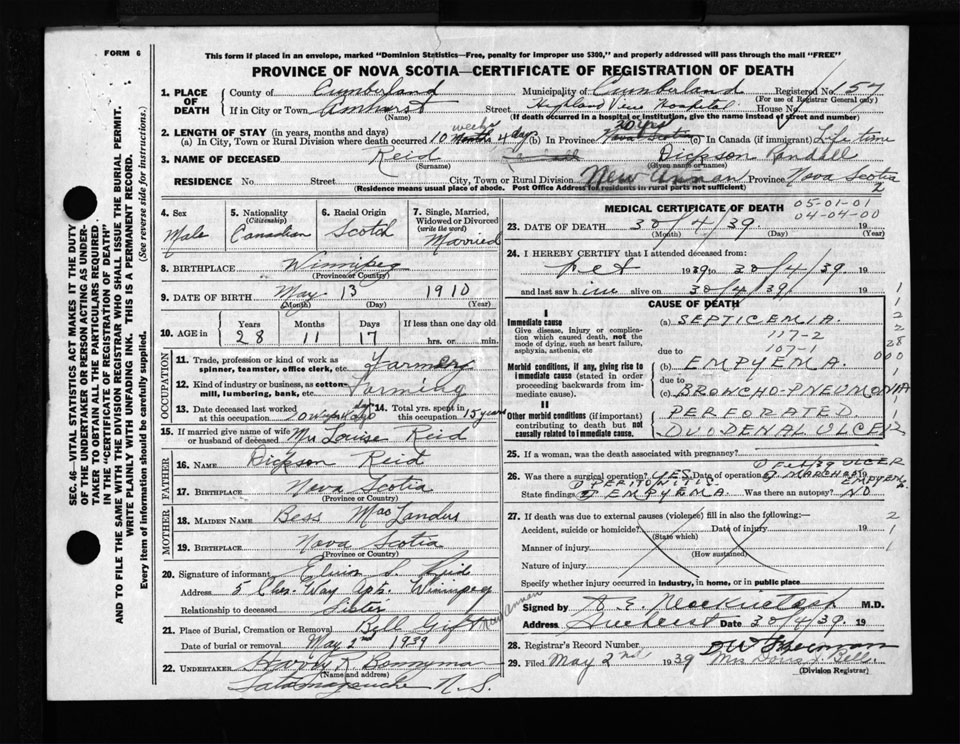 FORM 6
This form if placed in an envelope, marked "Dominion Statistics—Free, penalty for improper use $300," and properly addressed will pass through the mail "FREE"
PROVINCE OF NOVA SCOTIA—CERTIFICATE OF REGISTRATION OF DEATH
1. PLACE OF DEATH
County of Cumberland
Municipality of Cumberland Registered No. 157
(For use of Registrar General only)
If in City or Town Amherst Street Highland View Hospital House No.
(Name) (If death occurred in a hospital or institution, give the name instead of street and number)
2. LENGTH OF STAY (in years, months and days)
(a) In City, Town or Rural Division where death occurred 10 weeks months 4 days (b) In Province 30 yrs Nova Scotia (c) In Canada (if immigrant) Life time
3. NAME OF DECEASED Reid Dickson Randall
(Surname) (Given name or names)
RESIDENCE No. Street City, Town or Rural Division New Annan Province Nova Scotia
(Residence means usual place of abode. Post Office Address for residents in rural parts not sufficient) 2
4. Sex Male
5. Nationality (Citizenship) Canadian
6. Racial Origin Scotch
7. Single, Married, Widowed or Divorced (write the word) Married
8. BIRTHPLACE Winnipeg
(Province or Country)
9. DATE OF BIRTH May 13 1910
(Month) (Day) (Year)
10. AGE in Years 28 Months 11 Days 17 If less than one day old hrs. or min.
OCCUPATION
11. Trade, profession or kind of work as spinner, teamster, office clerk, etc. Farmer
12. Kind of industry or business, as cotton-mill, lumbering, bank, etc. Farming
13. Date deceased last worked at this occupation 10 wks 4 days ago
14. Total yrs. spent in this occupation 15 years
15. If married give name of wife or husband of deceased Mrs Louise Reid
FATHER
16. NAME Dickson Reid
17. BIRTHPLACE Nova Scotia
(Province or Country)
MOTHER
18. MAIDEN NAME Bess Mac Landers
19. BIRTHPLACE Nova Scotia
(Province or Country)
20. Signature of informant Reid
Address 5 Chos. Way Aps. Winnipeg
Relationship to deceased Sister
21. Place of Burial, Cremation or Removal Bell Gift New Annan
Date of burial or removal May 2nd 1939
22. UNDERTAKER Bonnyman
(Name and address)
Tatamagouche N.S.
MEDICAL CERTIFICATE OF DEATH 05-01-01
04-04-00
23. DATE OF DEATH 30/4/39.
(Month) (Day) (Year)
24. I HEREBY CERTIFY that I attended deceased from:
1939 to 30/4/39. 19
and last saw him alive on 30/4/39 19
CAUSE OF DEATH
I
Immediate cause
Give disease, injury or complication which caused death, not the mode of dying, such as heart failure, asphyxia, asthenia, etc
(a) SEPTICEMIA.
117-2
due to 107-1
Morbid conditions, if any, giving rise to immediate cause (stated in order proceeding backwards from immediate cause).
(b) EMPYEMA.
due to
(c) BRONCHO-PNEUMONIA
II
Other morbid conditions (if important) contributing to death but not causally related to immediate cause.
PERFORATED
DUODENAL ULCER
1
1
2
2
28
000
1
25. If a woman, was the death associated with pregnancy?
26. Was there a surgical operation? YES. Date of operation ① Feb/39 ULCER ② MARCH 20 EMPYEM.
State findings ① PERITONITIS ② EMPYEMA. Was there an autopsy? NO
27. If death was due to external causes (violence) fill in also the following:—
Accident, suicide or homicide? Date of injury 19 2
(State which)
Manner of injury 1
(How sustained)
Nature of injury
Specify whether injury occurred in industry, in home, or in public place
Signed by D. E. Mackintosh M.D.
Address Amherst Date 30/4/39. 19
28. Registrar's Record Number
29. Filed May 2nd 1939 Mrs Bell
(Division Registrar)
SEC. 46—VITAL STATISTICS ACT MAKES IT THE DUTY
OF THE UNDERTAKER OR PERSON ACTING AS UNDERTAKER TO OBTAIN ALL THE PARTICULARS REQUIRED
IN THE "CERTIFICATE OF REGISTRATION OF DEATH"
AND TO FILE THE SAME WITH THE DIVISION REGISTRAR WHO SHALL ISSUE THE BURIAL PERMIT.
WRITE PLAINLY WITH UNFADING INK. THIS IS A PERMANENT RECORD.
Every item of information should be carefully supplied. (See reverse side for instructions.)